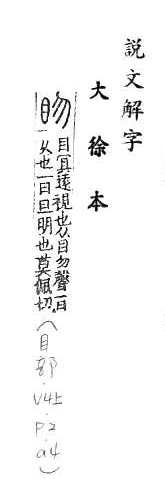 說文解字
大徐本
目冥遠視也从目勿聲一曰
久也一曰旦明也莫佩切
(目部·V4上·P2·a4)